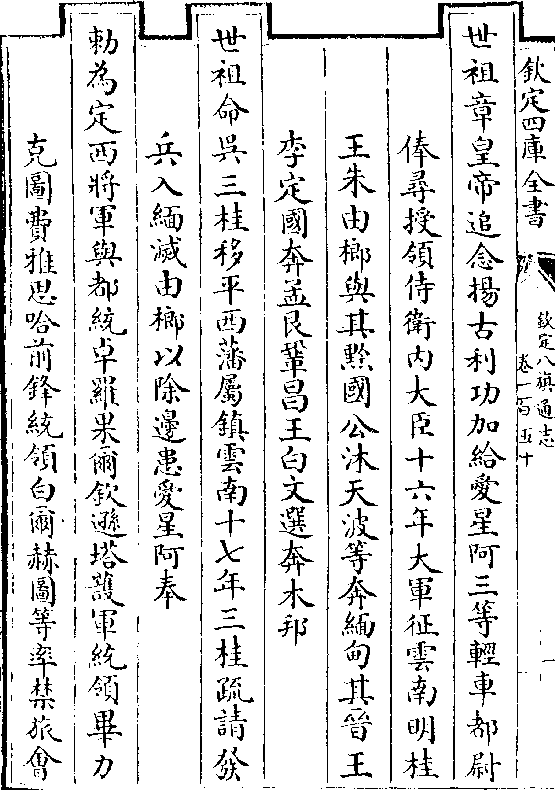 欽定四庫全書
欽定八旗通志
卷一百五十
一
世祖章皇帝追念揚古利功加給愛星阿三等輕車都尉
俸尋授領侍衛内大臣十六年大軍征雲南明桂
王朱由榔與其黔國公沐天波等奔緬甸其晉王
李定國奔孟艮鞏昌王白文選奔木邦
世祖命吳三桂移平西藩屬鎮雲南十七年三桂疏請發
兵入緬滅由榔以除邊患愛星阿奉
勅為定西將軍與都統卓羅果爾欽遜塔護軍統領畢力
克圖費雅思哈前鋒統領白爾赫圖等率禁旅㑹